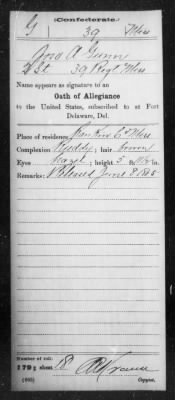 (Confederate.)
G 39 Miss
Jno A Gunn
2 Lt 39 Regt Miss
Name appears as signature to an
Oath of Allegiance
to the United States, subscribed to at Fort
Delaware, Del.
Place of residence Rankin Co Miss
Complexion Ruddy; hair brown
Eyes Hazel; height 5 ft in.
Remarks: Released June 8 1865
Number of roll:
179; sheet 18
Copyist.